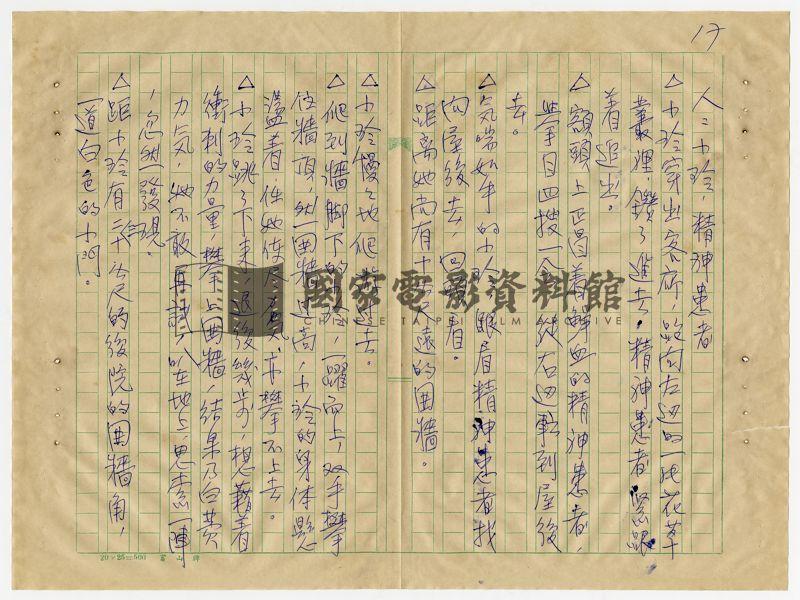 17
人：小玲，精神患者
△小玲穿出客廳，跑向左邊的一叢花草
叢裡，鑽了進去，精神患者緊跟
着追出。
△額頭上正冒着鮮血的精神患者，
舉目四搜一
去。
△氣喘如牛的小
向屋後去
△距離她尚有十 遠的圍牆。
△小玲慢慢地爬 過去。
△爬到牆脚下的小玲，一躍而上，双手攀
住牆頂，然圍牆過高，小玲的身体懸
盪着，任她使尽 ，亦攀不上去。
△小玲跳了下來，退後幾步，想藉着
衝刺的力量 攀上圍牆，結果乃白費
力氣，她不敢再試，趴在地上，思索一陣
，忽然發現。
△距小玲有二十公尺的後院的圍牆角，
一道白色的小門。
國家電影資料館
CHINESE TAIPEI FILM ARCHIVE
20×25=500